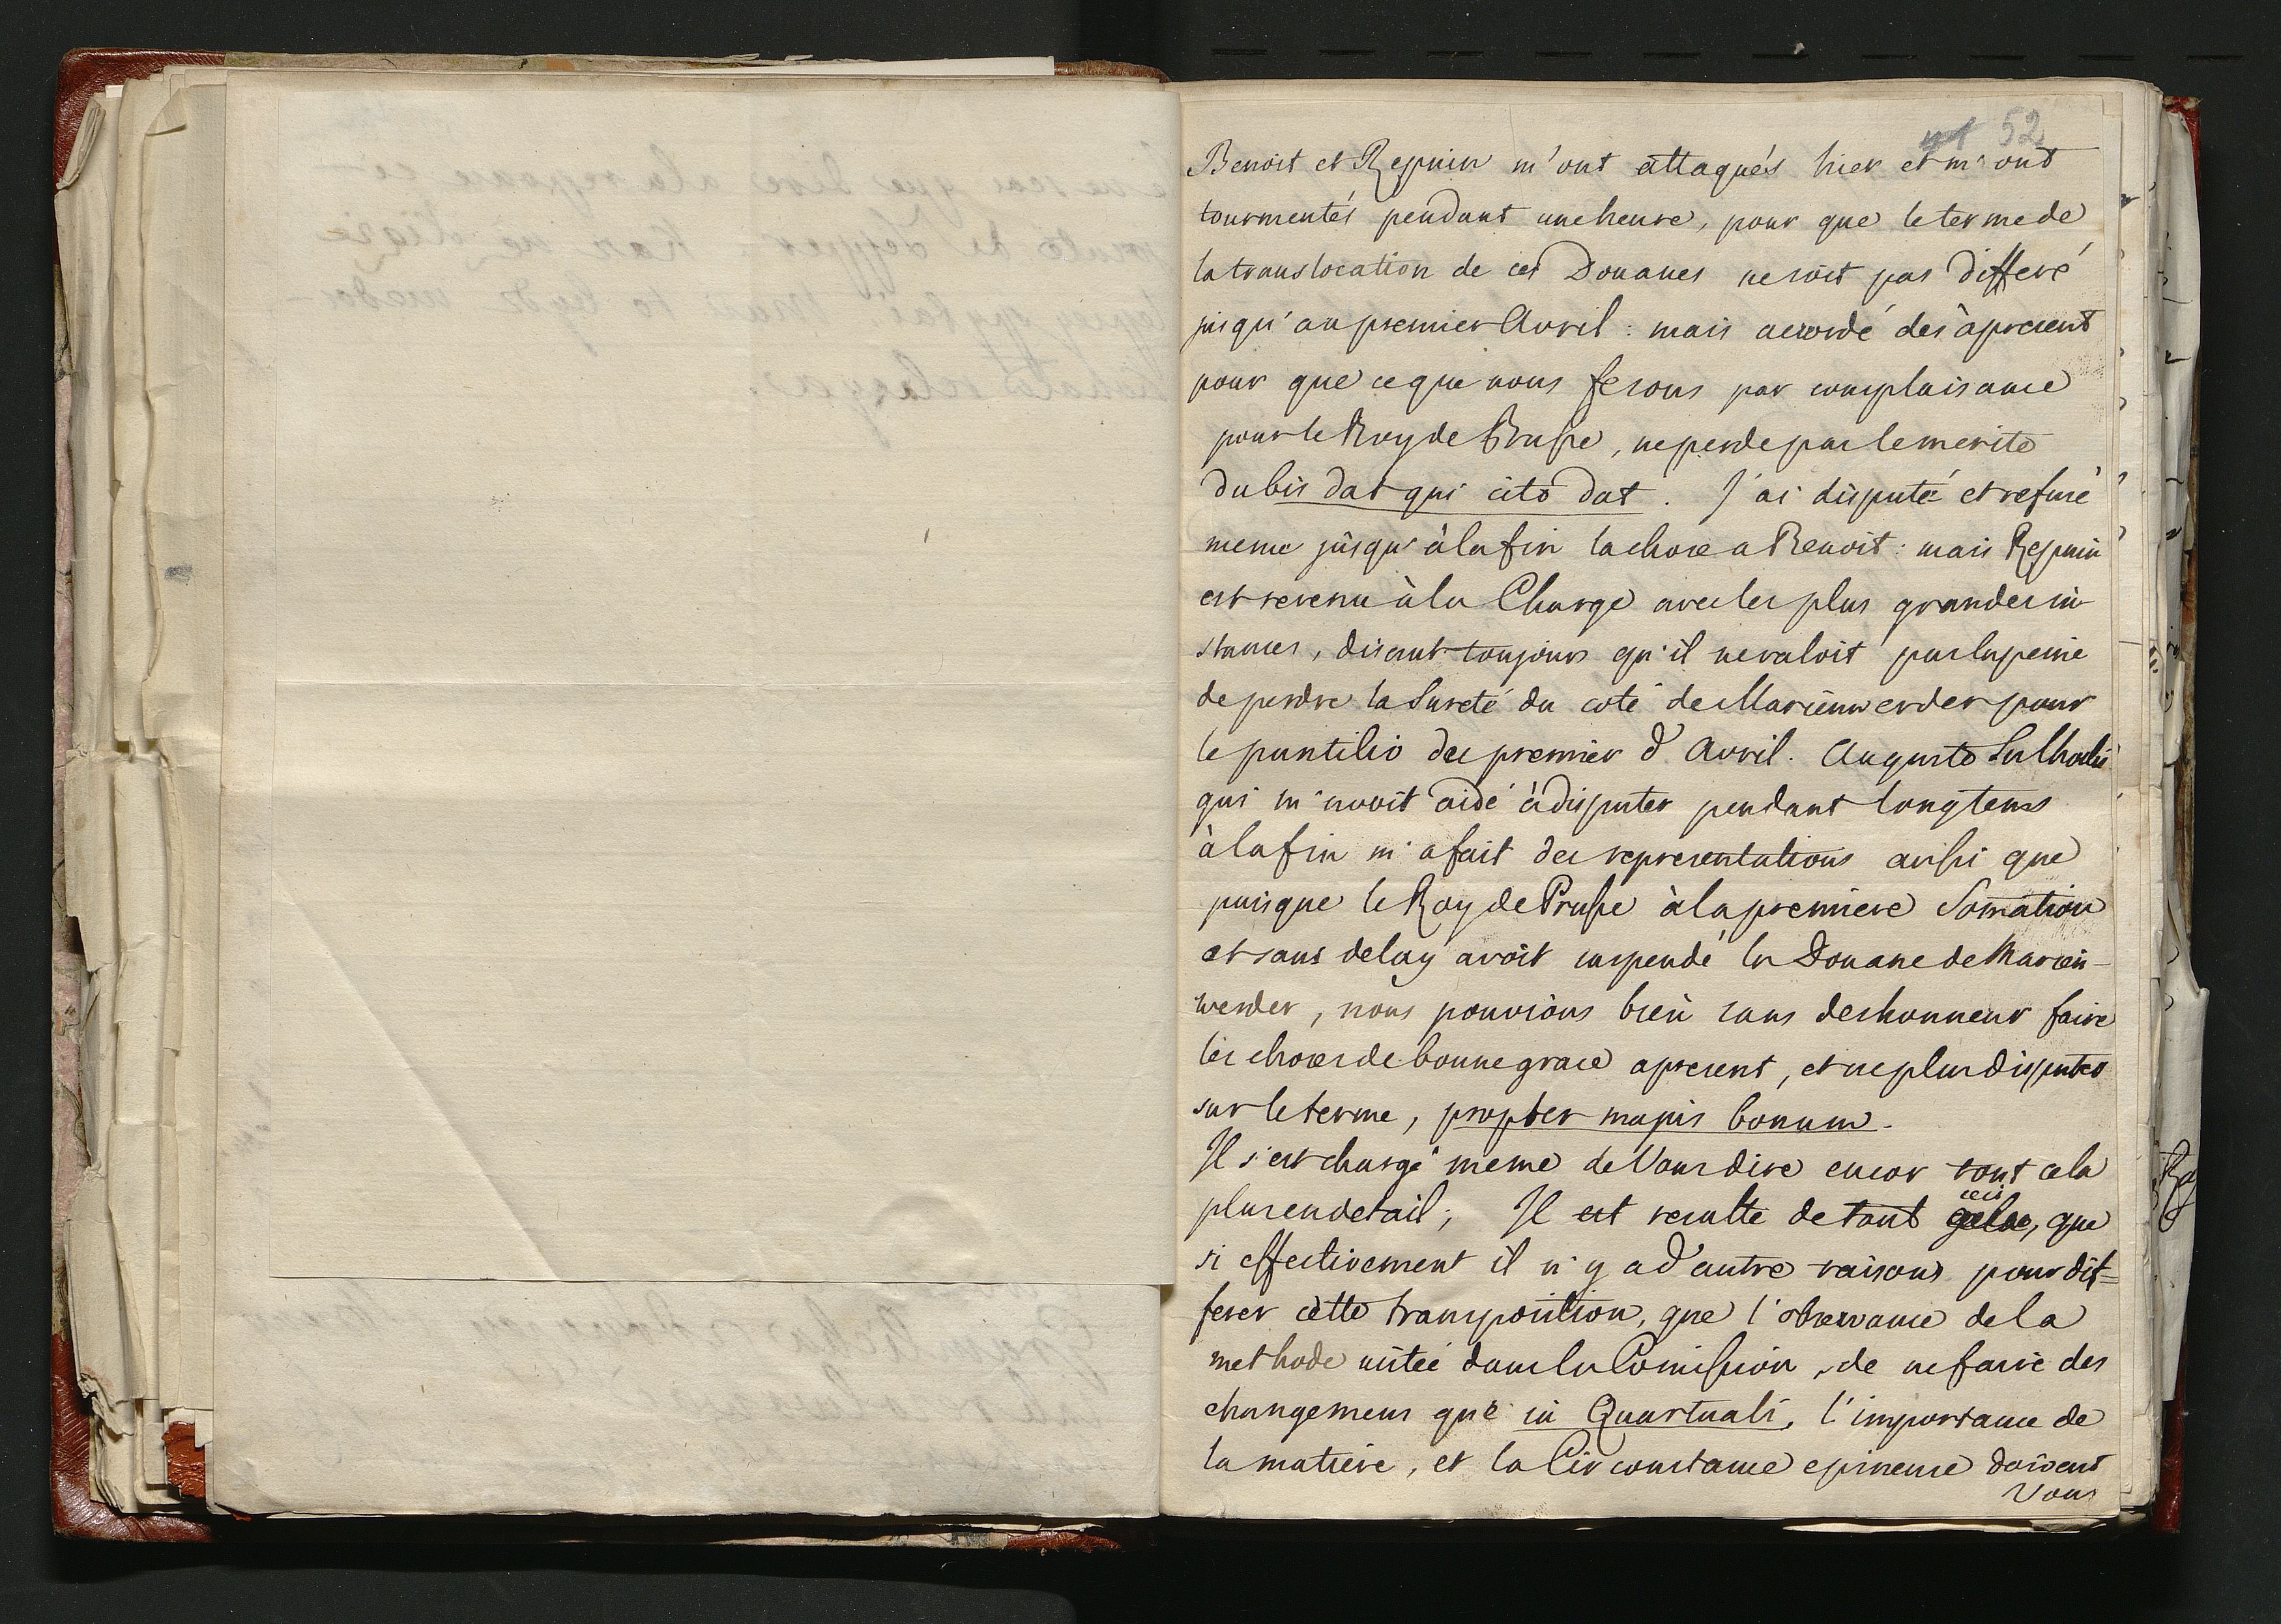 52
Benoit et Repnin m'ont attaqués hier et m'ont
tourmentés pendant une heure, pour que le terme de
la translocation de ces Douanes ne soit pas differé
jusqu'au premier Avril : mais acordé des àpresent
pour que ce que nous ferons par complaisance
pour le Roy de Prusse, ne perde pas le merite
du bis dat qui cito dat. J'ai disputé et refusé
meme jusqu'à la fin la chose a Benoit : mais Repnin
est revenu à la Charge avec les plus grandes in-
stances, disant toujours qu'il ne valoit pas la peine
de perdre la Sureté du coté de Marienwerder pour
le puntilio du premier d'Avril. Auguste Sulkoski
qui m'avoit aidé à disputer pendant longtems
à la fin m'a fait des representations aussi que
puisque le Roy de Prusse à la premiere Somation
et sans delay avoit suspendé la Douane de Marien-
werder, nous pouvions bien sans deshonneur faire
les choses de bonne grace apresent, et ne plus disputer
sur le terme, propter majus bonum.
Il s'est chargé meme de Vous dire encor tout cela
plus en detail ; Il est resulte de tout ceci, que
si effectivement il n'y a d'autre raisons pour dif=
ferer cette transposition, que l'observance de la
methode usitée dans la Comission, de ne faire des
changemens que in Quartuali, l'importance de
la matiere, et la Circonstance epineuse doivent
Vous